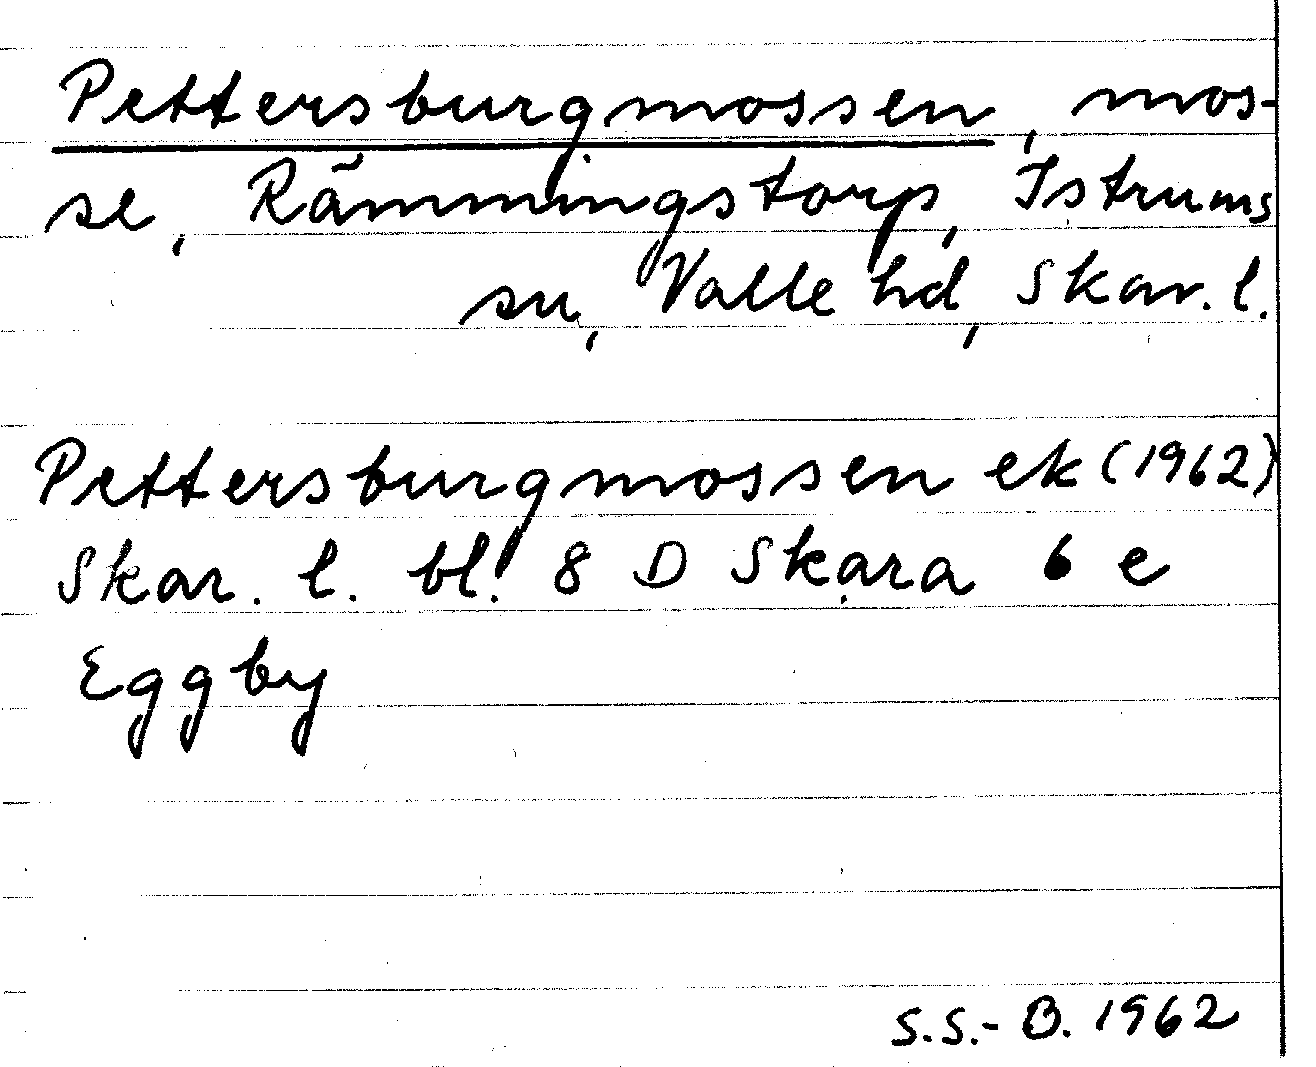 Pettersburgmossen, mos-
se, Rämmingstorp, Istrums
sn, Valle hd, Skar. l.
Pettersburgmossen ek (1962)
Skar. l. bl. 8 D Skara 6 e
Eggby
S.S.-B. 1962